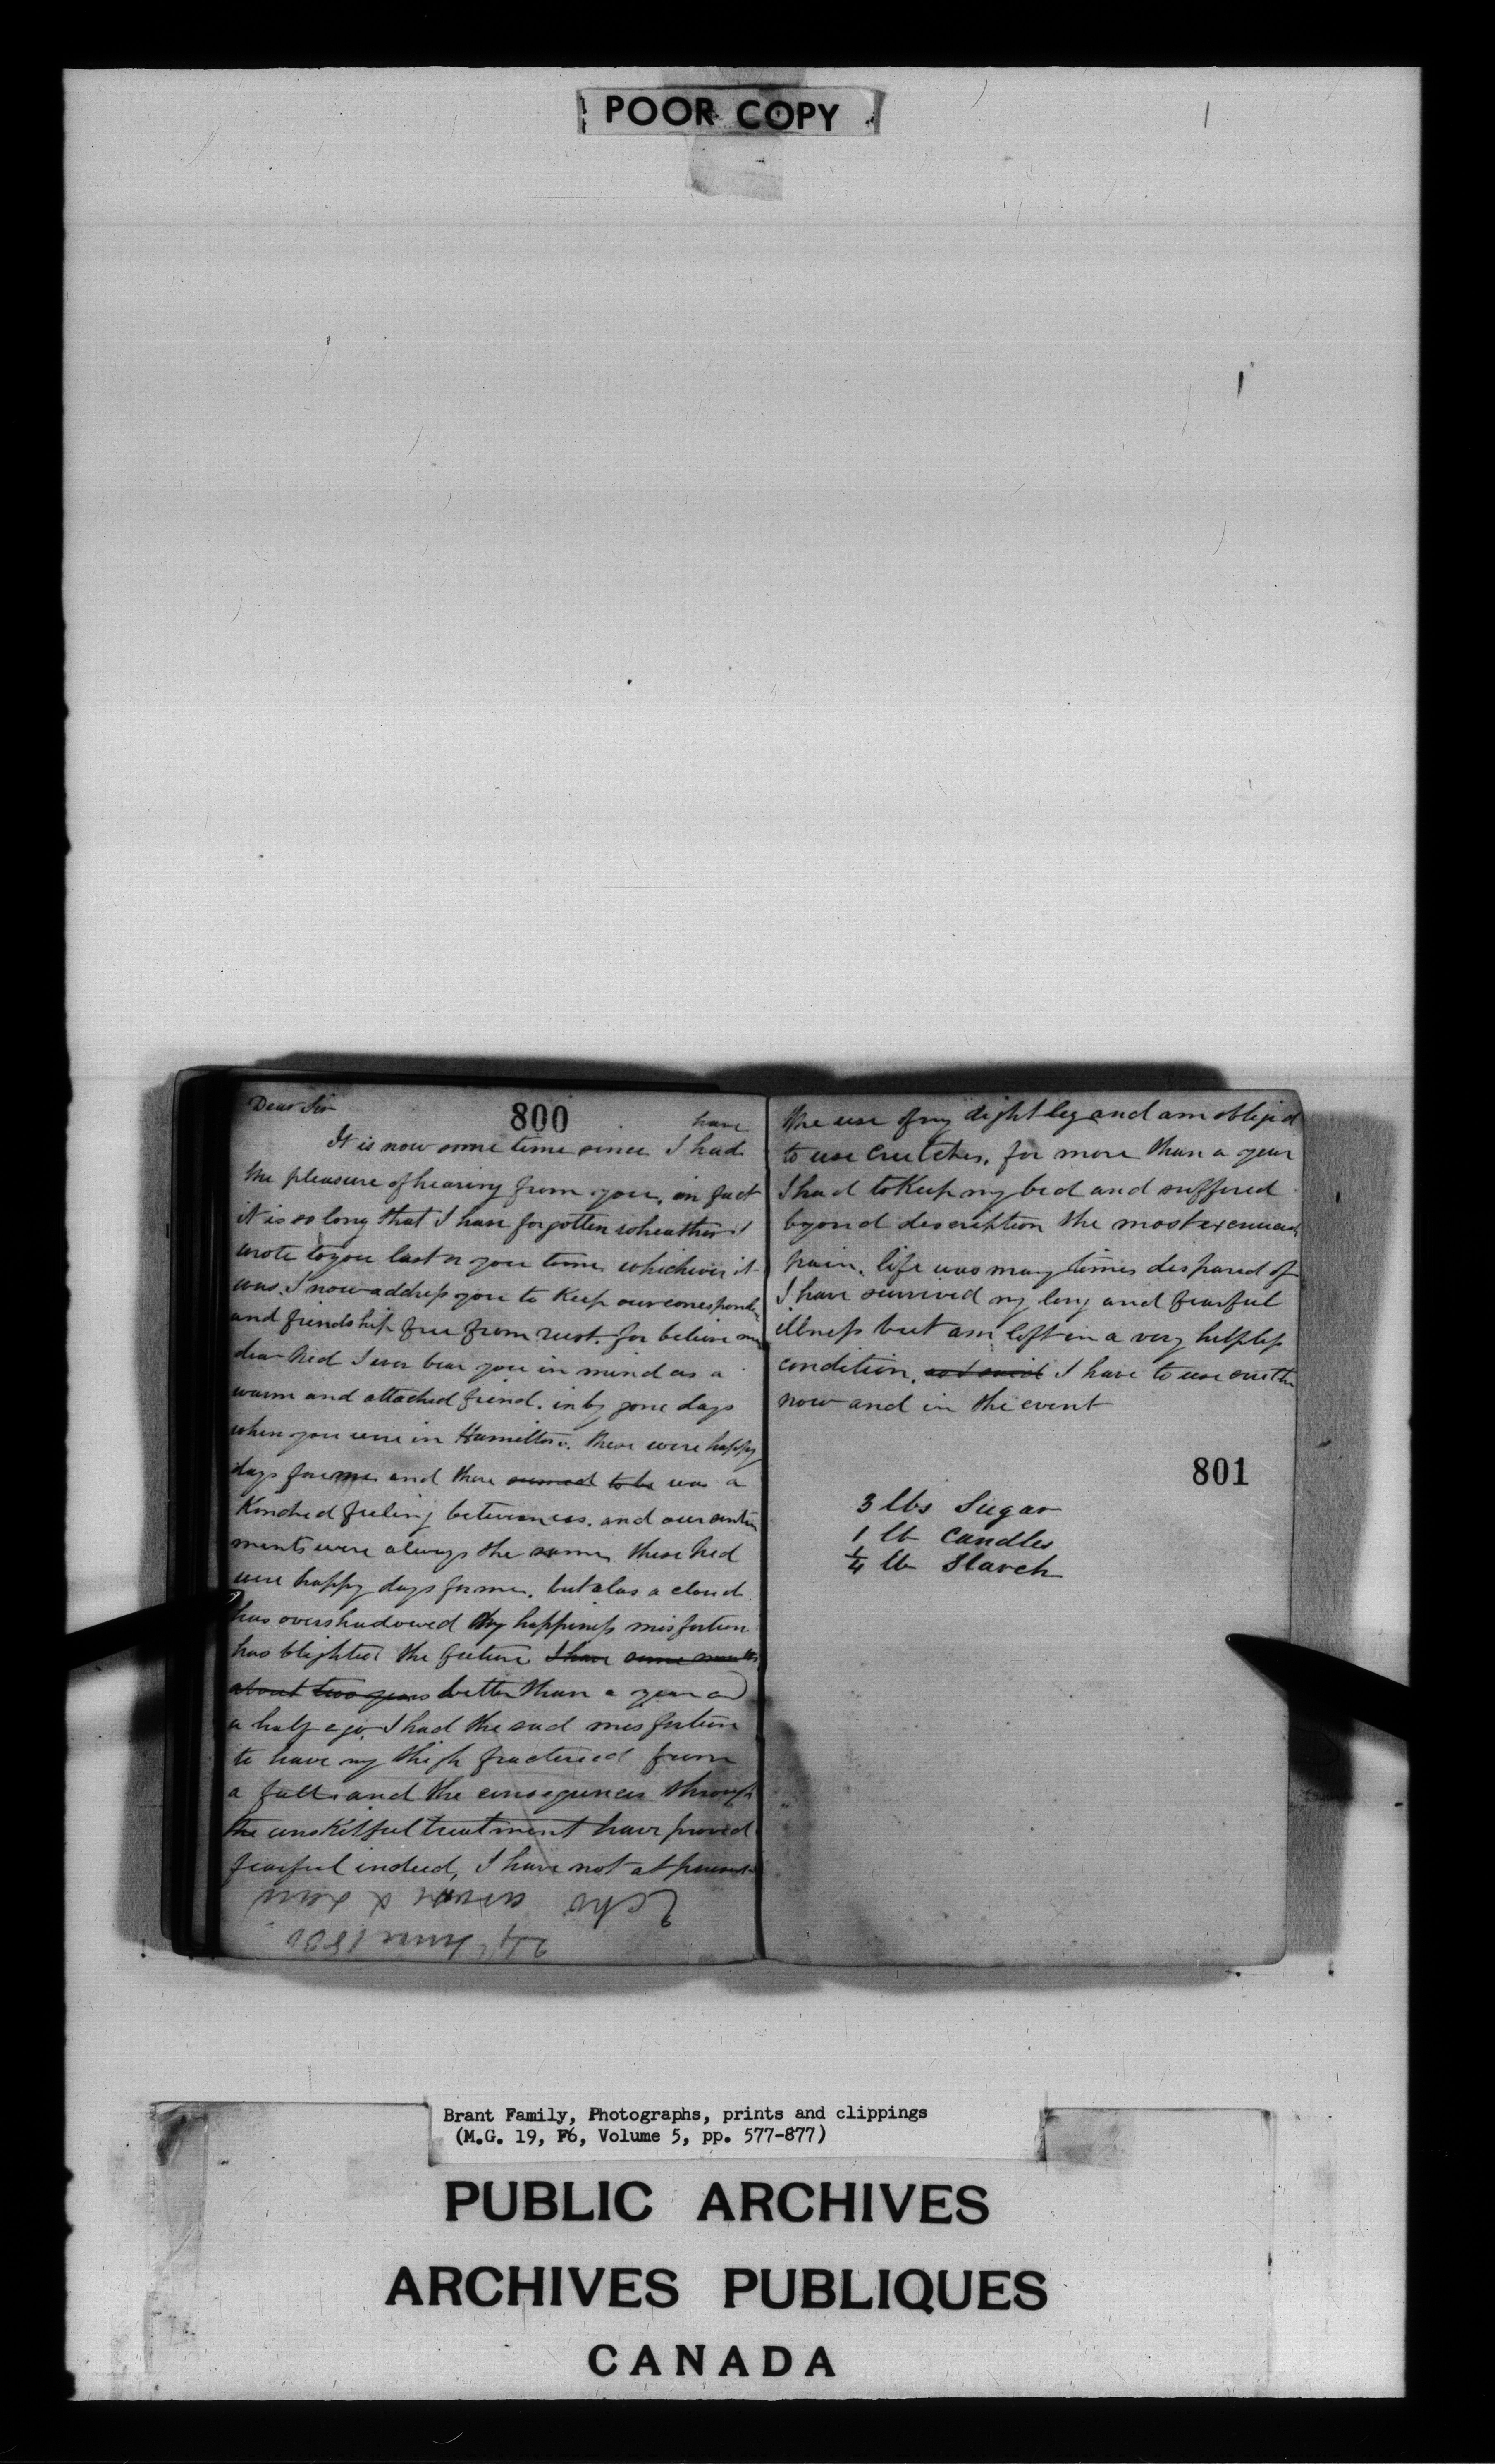 POOR COPY
800
Dear Sir
have
It is now some time since I had
the pleasure of hearing from you, in fact
it is so long that I have forgotten wheather I
wrote to you last or you to me, whichever it
was. I now address you to Keep our corresponde
and friendship free from rust. for believe me
dear Ned I ever bear you in mind as a
warm and attached friend. in by gone days
when you were in Hamilton. these were happy
days for me and there seemed to be was a
Kindred feeling between us. and our senti
ments were always the same, these Ned
were happy days for me. but alas a cloud
has overshadowed my happiness misfortune
has blighted the future I have some months
about two years better than a year and
a half ago, I had the sad misfortune
to have my thigh fractured from
a fall and the consequences through
the unskilful treatment have proved
fearful indeed, I have not at present
24th June
the use of my right leg and am obliged
to use Crutches, for more than a year
I had to Keep my bed and suffered
beyond description the most
pain. life was many times despared of
I have survived my long and fearful
illness but am left in a very helpless
condition. I have to use
now and in the event
801
3 lbs Sugar
1 lb Candles
1/4 lb Starch
Brant Family, Photographs, prints and clippings
(M.G. 19, F6, Volume 5, pp. 577-877)
PUBLIC ARCHIVES
ARCHIVES PUBLIQUES
CANADA